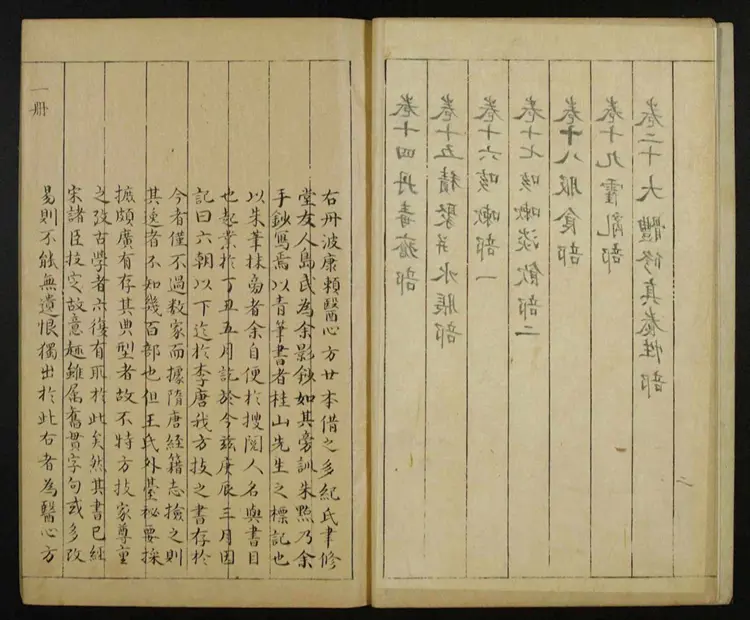 卷二十大體修真養性部
卷十九霍亂部
卷十八服食部
卷十七咳嗽淡飲部二
卷十六咳嗽部一
卷十五積聚并水脹部
卷十四丹毒瘡部
二
右丹波康頼醫心方廿本借之多紀氏聿修
堂友人島氏為余影鈔如其旁訓朱㸃乃余
手鈔寫焉以青筆書者桂山先生之標記也
以朱筆抹旁者余自便於搜閲人名與書目
也起業於丁丑五月訖於今茲庚辰三月因
記曰六朝以下迄於李唐我方技之書存於
今者僅不過数家而據隋唐經籍志撿之則
其逸者不知幾百部也但王氏外臺秘要採
摭頗廣有存其典型者故不特方技家尊重
之攷古學者亦復有取於此矣然其書已經
宋諸臣挍定故意趣雖属舊貫字句或多改
易則不能無遺恨獨出於此右者為醫心方
一册